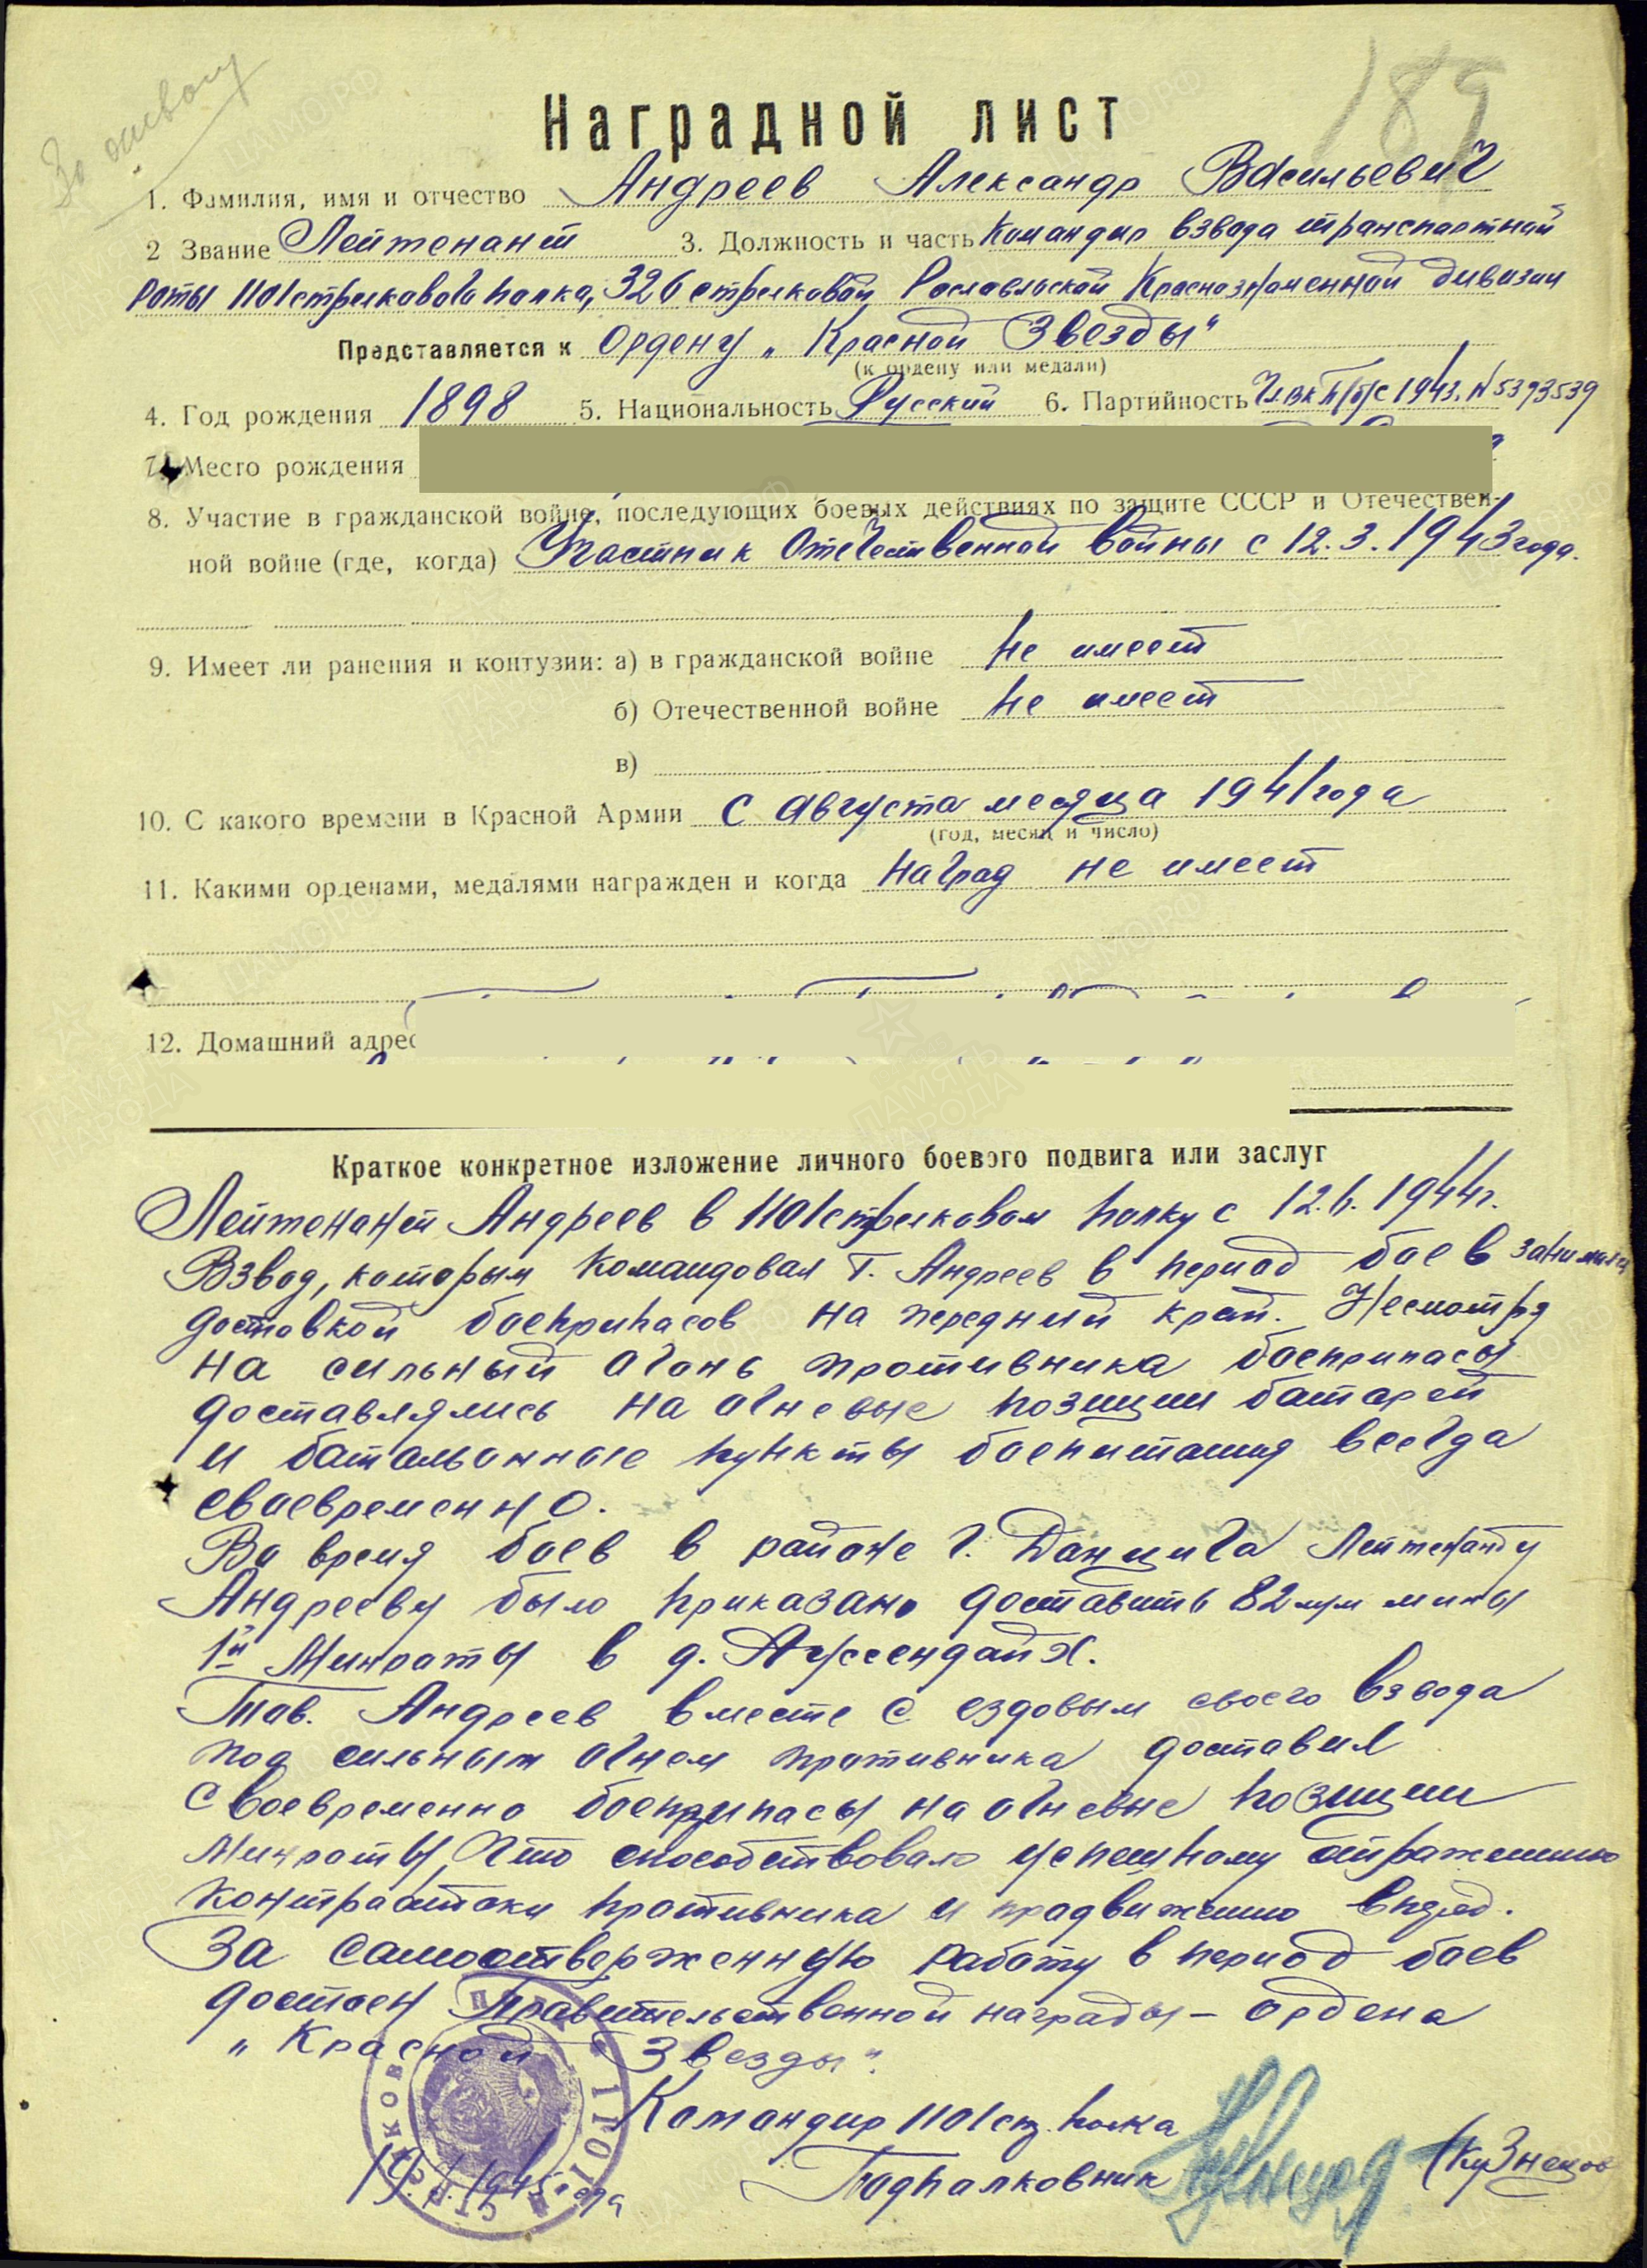 189
Наградной лист
1. Фамилия, имя и отчество Андреев Александр Васильевич
2 Звание Лейтенант 3. Должность и часть Командир взвода транспортной
роты 1101 стрелкового полка, 326 стрелковой Рославльской Краснознаменной дивизии
Представляется к Ордену „Красной Звезды"
(к ордену или медали)
4. Год рождения 1898 5. Национальность Русский 6. Партийность Чл ВКП/б/ с 1943г. N 5393539
7. Место рождения
8. Участие в гражданской войне, последующих боевых действиях по защите СССР и Отечествен-
ной войне (где, когда) Участник Отечественной войны с 12.3.1943 года.
9. Имеет ли ранения и контузии: а) в гражданской войне не имеет
б) Отечественной войне не имеет
в)
10. С какого времени в Красной Армии с августа месяца 1941 года
(год, месяц и число)
11. Какими орденами, медалями награжден и когда наград не имеет
12. Домашний адрес
Краткое конкретное изложение личного боевого подвига или заслуг
Лейтенант Андреев в 1101 стрелковом полку с 12.6.1944г.
Взвод, которым командовал т. Андреев в период боев занимался
доставкой боеприпасов на передний край. Несмотря
на сильный огонь противника боеприпасы
доставлялись на огневые позиции батарей
и батальонные пункты боепитания всегда
своевременно.
Во время боев в районе г. Данцига Лейтенанту
Андрееву было приказано доставить 82 мм мины
1й Минроты в д. Ауссендайх.
Тов. Андреев вместе с ездовым своего взвода
под сильным огнем противника доставил
своевременно боеприпасы на огневые позиции
Минроты, что способствовало успешному отражению
контратаки противника и продвижению вперед.
За самоотверженную работу в период боев
достоен Правительственной награды - ордена
„Красной Звезды".
Командир 1101 стр. полка
Подполковник (Кузнецов
1945 года
1101